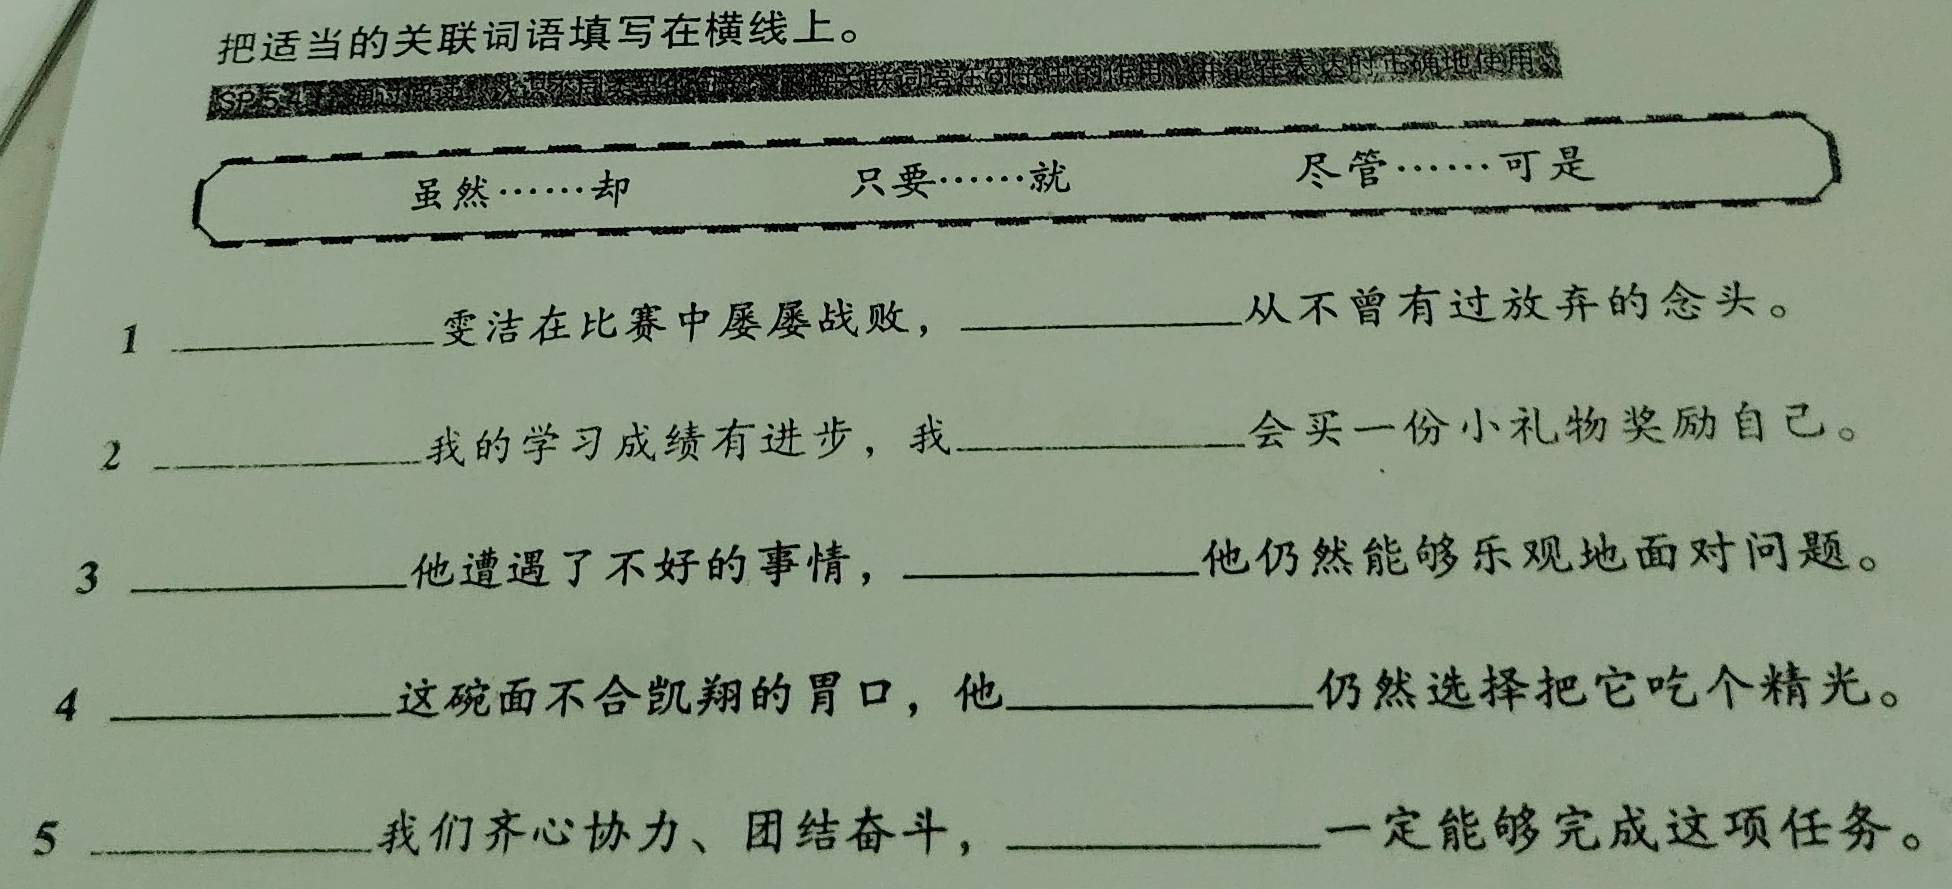 把适当的关联词语填写在横线上。
SP 5.4.1
关联词语在句子中的作用，并能在表达时正确地使用。
虽然……却 只要……就 尽管……可是
1 ____________雯洁在比赛中屡屡战败，____________从不曾有过放弃的念头。
2 ____________我的学习成绩有进步，我____________会买一份小礼物奖励自己。
3 ____________他遭遇了不好的事情，____________他仍然能够乐观地面对问题。
4 ____________这碗面不合凯翔的胃口，他____________仍然选择把它吃个精光。
5 ____________我们齐心协力、团结奋斗，____________一定能够完成这项任务。